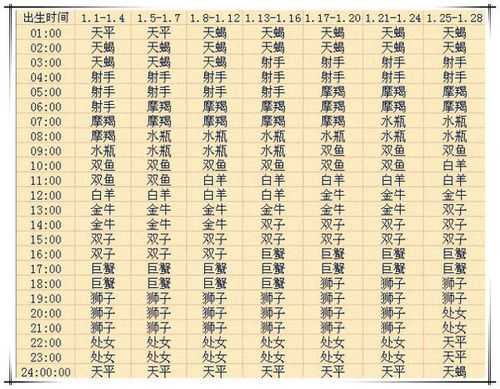 出生时间 1.1-1.4 1.5-1.7 1.8-1.12 1.13-1.16 1.17-1.20 1.21-1.24 1.25-1.28
01:00 天平 天平 天蝎 天蝎 天蝎 天蝎 天蝎
02:00 天蝎 天蝎 天蝎 天蝎 天蝎 天蝎 天蝎
03:00 天蝎 天蝎 天蝎 射手 射手 射手 射手
04:00 射手 射手 射手 射手 射手 射手 射手
05:00 射手 射手 射手 射手 摩羯 摩羯 摩羯
06:00 射手 摩羯 摩羯 摩羯 摩羯 摩羯 摩羯
07:00 摩羯 摩羯 摩羯 摩羯 摩羯 水瓶 水瓶
08:00 摩羯 水瓶 水瓶 水瓶 水瓶 水瓶 水瓶
09:00 水瓶 水瓶 水瓶 双鱼 双鱼 双鱼 双鱼
10:00 双鱼 双鱼 双鱼 双鱼 双鱼 双鱼 白羊
11:00 双鱼 双鱼 白羊 白羊 白羊 白羊 白羊
12:00 白羊 白羊 白羊 金牛 金牛 金牛 金牛
13:00 金牛 金牛 金牛 金牛 金牛 金牛 双子
14:00 金牛 金牛 金牛 双子 双子 双子 双子
15:00 双子 双子 双子 双子 双子 双子 双子
16:00 双子 双子 双子 巨蟹 巨蟹 巨蟹 巨蟹
17:00 巨蟹 巨蟹 巨蟹 巨蟹 巨蟹 巨蟹 巨蟹
18:00 巨蟹 巨蟹 巨蟹 巨蟹 狮子 狮子 狮子
19:00 狮子 狮子 狮子 狮子 狮子 狮子 狮子
20:00 狮子 狮子 狮子 狮子 狮子 狮子 处女
21:00 狮子 狮子 狮子 处女 处女 处女 处女
22:00 处女 处女 处女 处女 处女 处女 天平
23:00 处女 处女 处女 处女 处女 天平 天平
24:00:00 天平 天平 天平 天平 天平 天平 天蝎